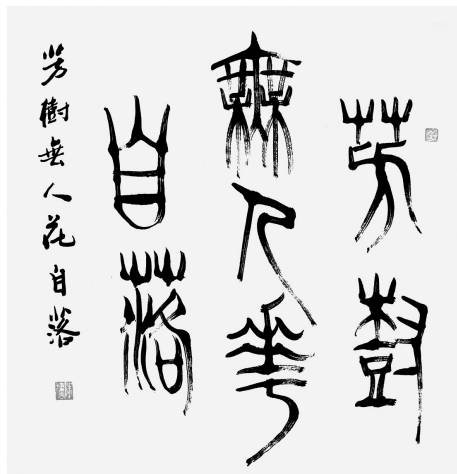 芳樹
無人華
自落
芳樹無人花自落